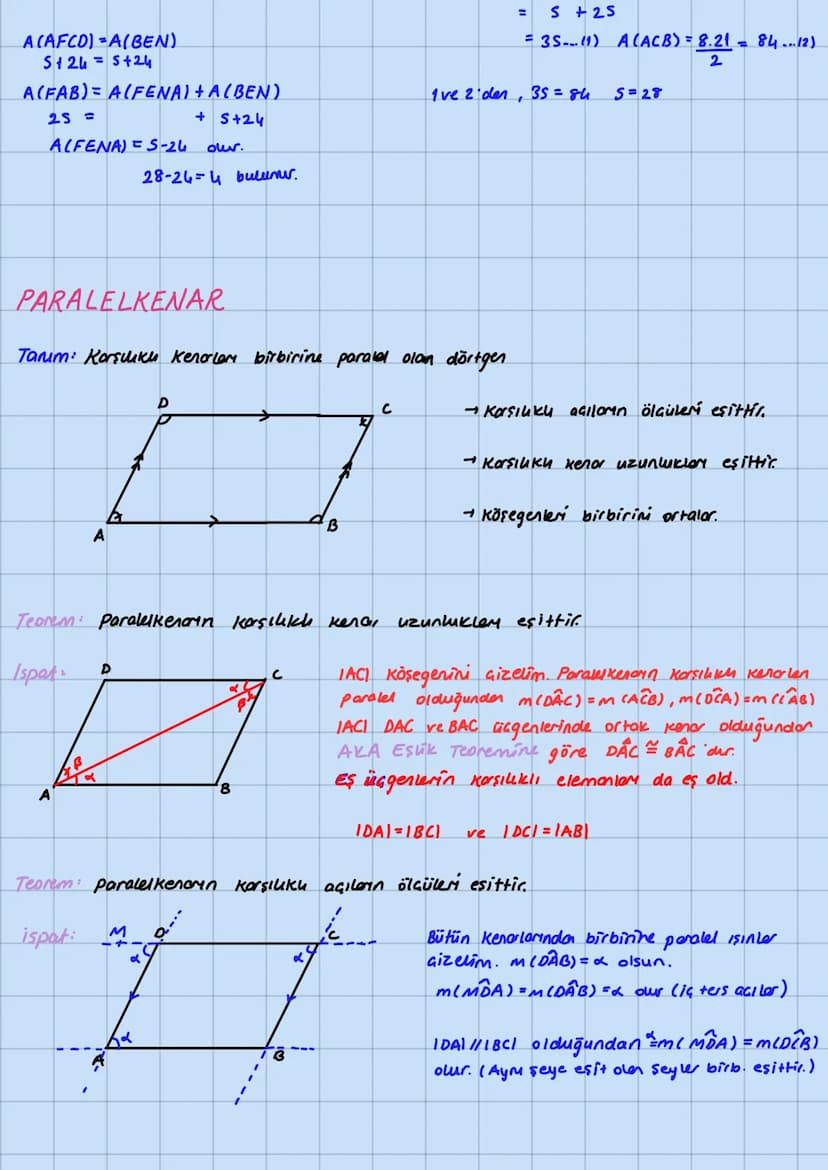 = S + 2S
A(AFCD) = A(BEN)
S+24 = S+24
= 3S....(1) A(ACB) = 8.21/2 = 84 ...(2)
A(FAB) = A(FENA) + A(BEN)
2S = + S+24
1 ve 2'den, 3S = 84 S = 28
A(FENA) = S-24 olur.
28-24 = 4 bulunur.
PARALELKENAR
Tanım: Karşılıklı kenarları birbirine paralel olan dörtgen
D
C
A
B
→ Karşılıklı açıların ölçüleri eşittir.
→ Karşılıklı kenar uzunlukları eşittir.
→ Köşegenleri birbirini ortalar.
Teorem: Paralelkenarın karşılıklı kenar uzunlukları eşittir.
İspat:
D
C
α
β
β
α
A
B
|AC| köşegenini çizelim. Paralelkenarın karşılıklı kenarları
paralel olduğundan m(DÂC) = m(AĈB), m(DĈA) = m(CÂB)
|AC| DAC ve BAC üçgenlerinde ortak kenar olduğundan
AKA Eşlik Teoremine göre DAC ≅ BAC 'dur.
Eş üçgenlerin karşılıklı elemanları da eş old.
|DA| = |BC| ve |DC| = |AB|
Teorem: Paralelkenarın karşılıklı açıların ölçüleri eşittir.
ispat:
M
D
C
α
α
α
A
B
Bütün kenarlarından birbirine paralel ışınlar
çizelim. m(DÂB) = α olsun.
m(MD̂A) = m(DÂB) = α dur (iç ters açılar)
|DA| // |BC| olduğundan α=m(MD̂A) = m(DĈB)
olur. (Aynı şeye eşit olan şeyler birb. eşittir.)